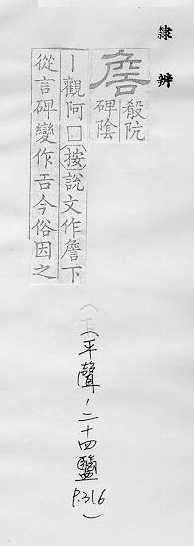 隸辨
詹 殽阮
碑陰
丨觀阿□按說文作詹下
從言碑變作舌今俗因之
(平聲,二十四鹽
P.316)